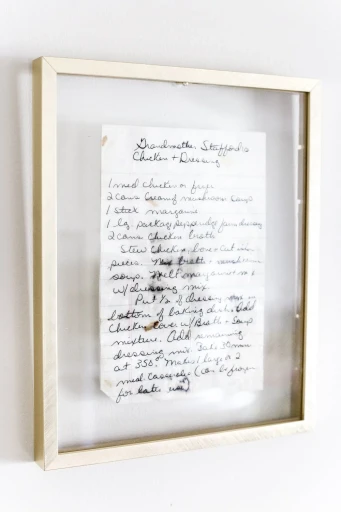 Grandmother Stafford's
Chicken + Dressing
1 med chicken or fryer
2 cans Cream of mushroom Soup
1 stick margarine
1 lg. package pepperidge farm dressing
2 cans chicken broth
Stew chicken, bone + cut in
pieces. Mix broth + mushroom
soup. Melt margarine + mix
w/dressing mix.
Put 1/2 of dressing mix in
bottom of baking dish. Add
chicken cover w/Broth + Soup
mixture. Add remaining
dressing mix. Bake 30 min
at 350°. Makes 1 large or 2
med casserole (can be frozen
for later use)